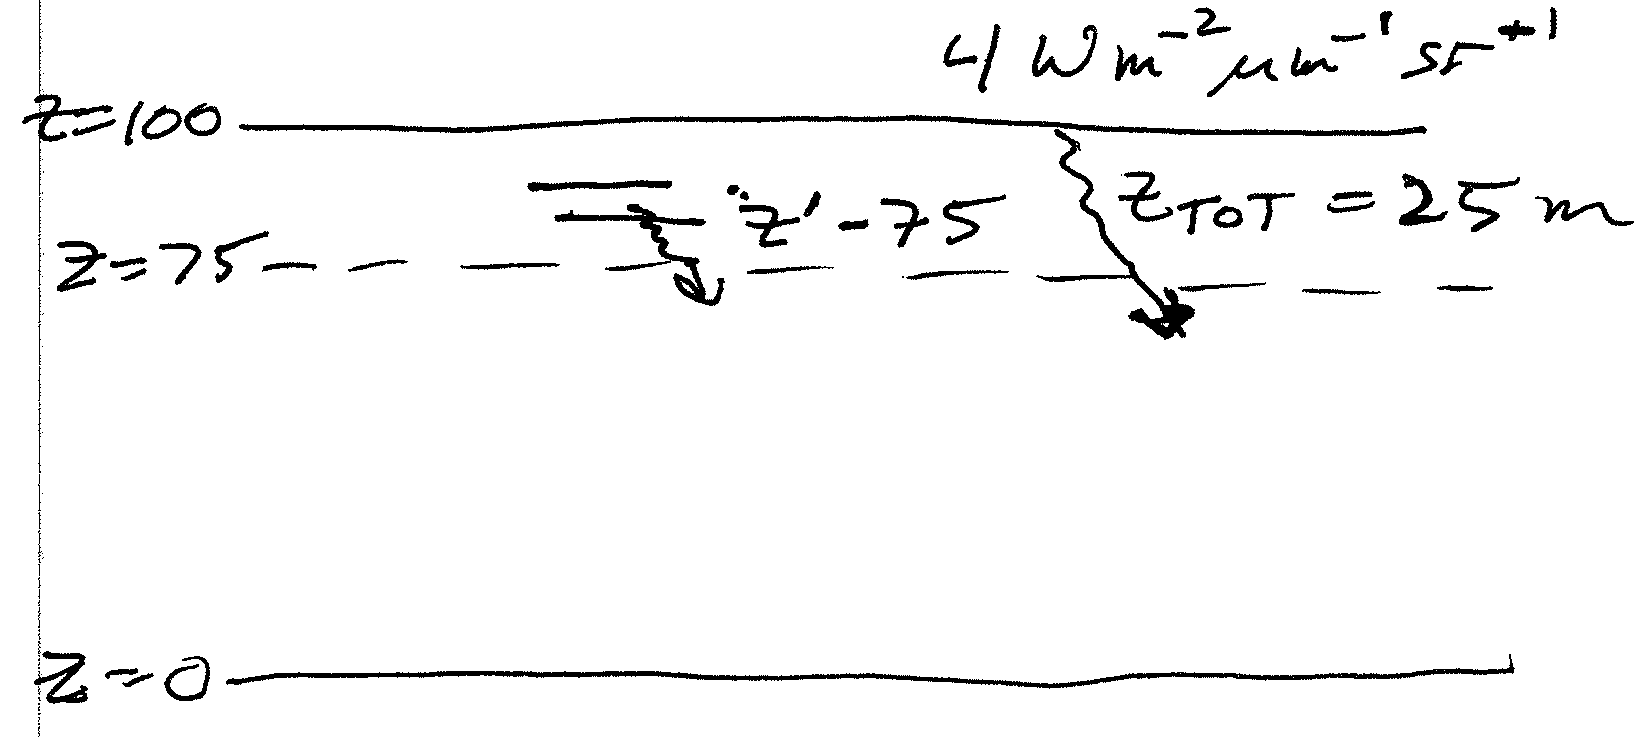 4 W m⁻² μm⁻¹ sr⁻¹
z=100
z' - 75
z_TOT = 25 m
z=75
z=0